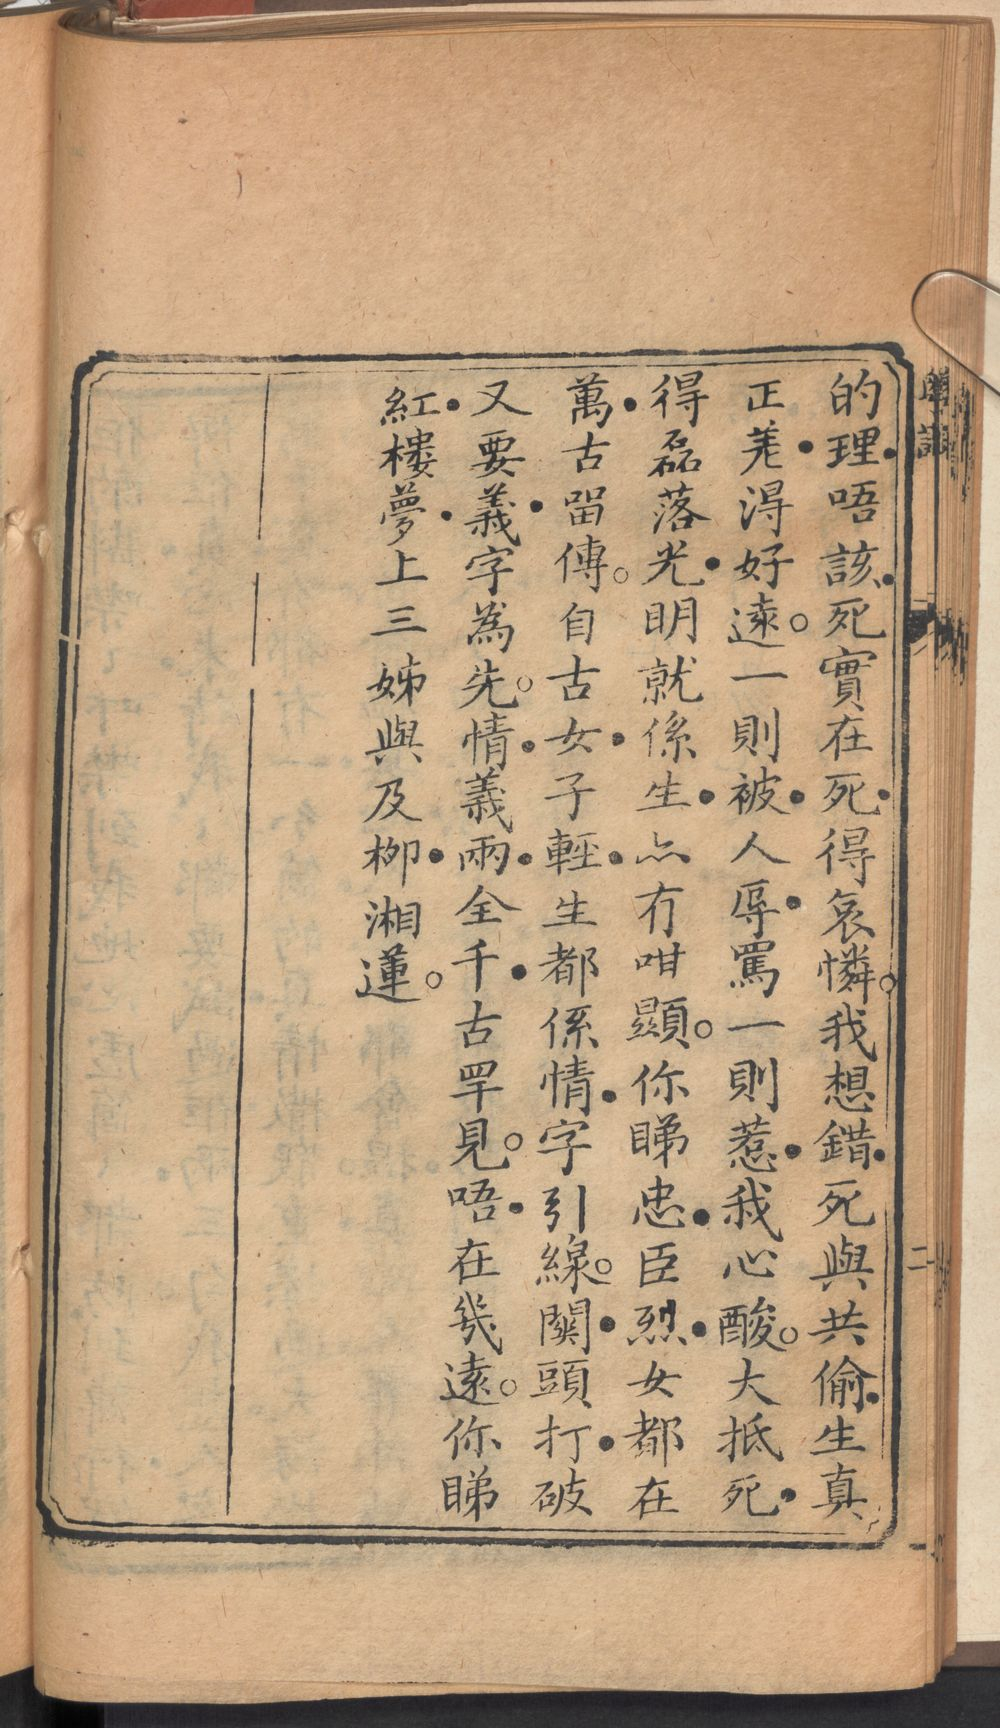 的理唔該死實在死得哀憐我想錯死與共偷生真
正羌淂好遠一則被人辱罵一則惹我心酸大抵死
得磊落光明就係生亦冇咁顯你睇忠臣烈女都在
萬古留傳自古女子輕生都係情字引線關頭打破
又要義字為先情義兩全千古罕見唔在㡬遠你睇
紅樓夢上三姊與及柳湘蓮
二